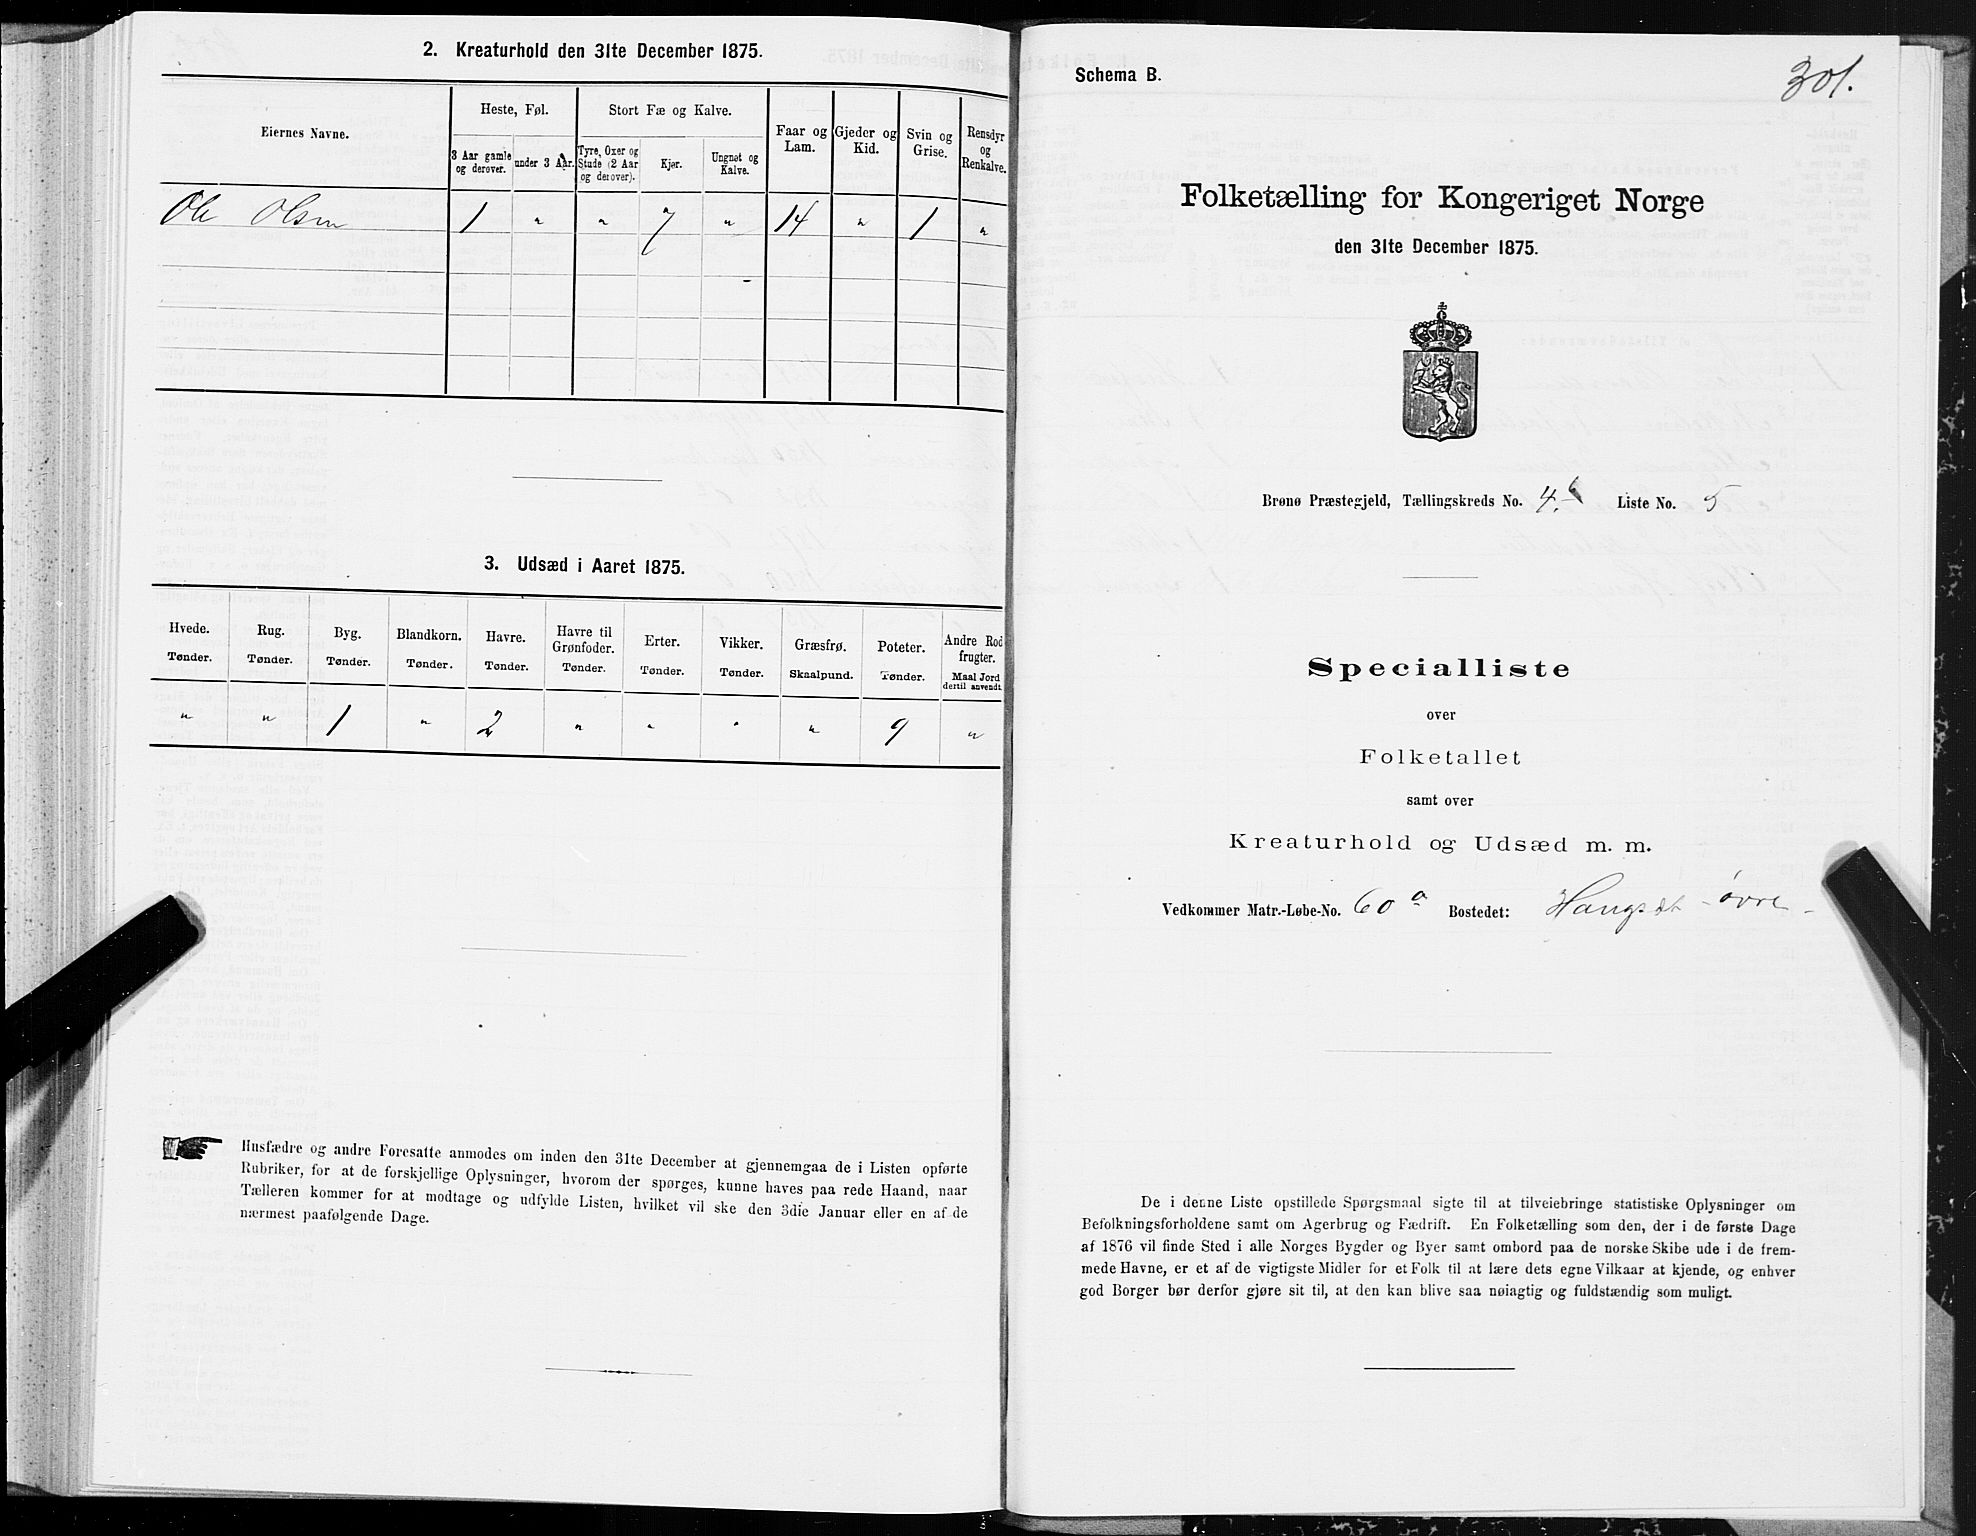 2. Kreaturhold den 31te December 1875.
Eiernes Navne.
Heste, Føl.
3 Aar gamle og derover.
under 3 Aar.
Stort Fæ og Kalve.
Tyre, Oxer og Stude (2 Aar og derover).
Kjør.
Ungnøt og Kalve.
Faar og Lam.
Gjeder og Kid.
Svin og Grise.
Rensdyr og Renkalve.
Ole Olsen 1 " " 7 " 14 " 1 "
3. Udsæd i Aaret 1875.
Hvede. Rug. Byg. Blandkorn. Havre. Havre til Grønfoder. Erter. Vikker. Græsfrø. Poteter. Andre Rodfrugter.
Tønder. Tønder. Tønder. Tønder. Tønder. Tønder. Tønder. Tønder. Skaalpund. Tønder. Maal Jord dertil anvendt.
" " 1 " 2 " " " " 9 "
Husfædre og andre Foresatte anmodes om inden den 31te December at gjennemgaa de i Listen opførte
Rubriker, for at de forskjellige Oplysninger, hvorom der spørges, kunne haves paa rede Haand, naar
Tælleren kommer for at modtage og udfylde Listen, hvilket vil ske den 3die Januar eller en af de
nærmest paafølgende Dage.
Schema B.
301.
Folketælling for Kongeriget Norge
den 31te December 1875.
Brønø Præstegjeld, Tællingskreds No. 4. Liste No. 5
Specialliste
over
Folketallet
samt over
Kreaturhold og Udsæd m. m.
Vedkommer Matr.-Løbe-No. 60a Bostedet: øvre
De i denne Liste opstillede Spørgsmaal sigte til at tilveiebringe statistiske Oplysninger om
Befolkningsforholdene samt om Agerbrug og Fædrift. En Folketælling som den, der i de første Dage
af 1876 vil finde Sted i alle Norges Bygder og Byer samt ombord paa de norske Skibe ude i de frem-
mede Havne, er et af de vigtigste Midler for et Folk til at lære dets egne Vilkaar at kjende, og enhver
god Borger bør derfor gjøre sit til, at den kan blive saa nøiagtig og fuldstændig som muligt.